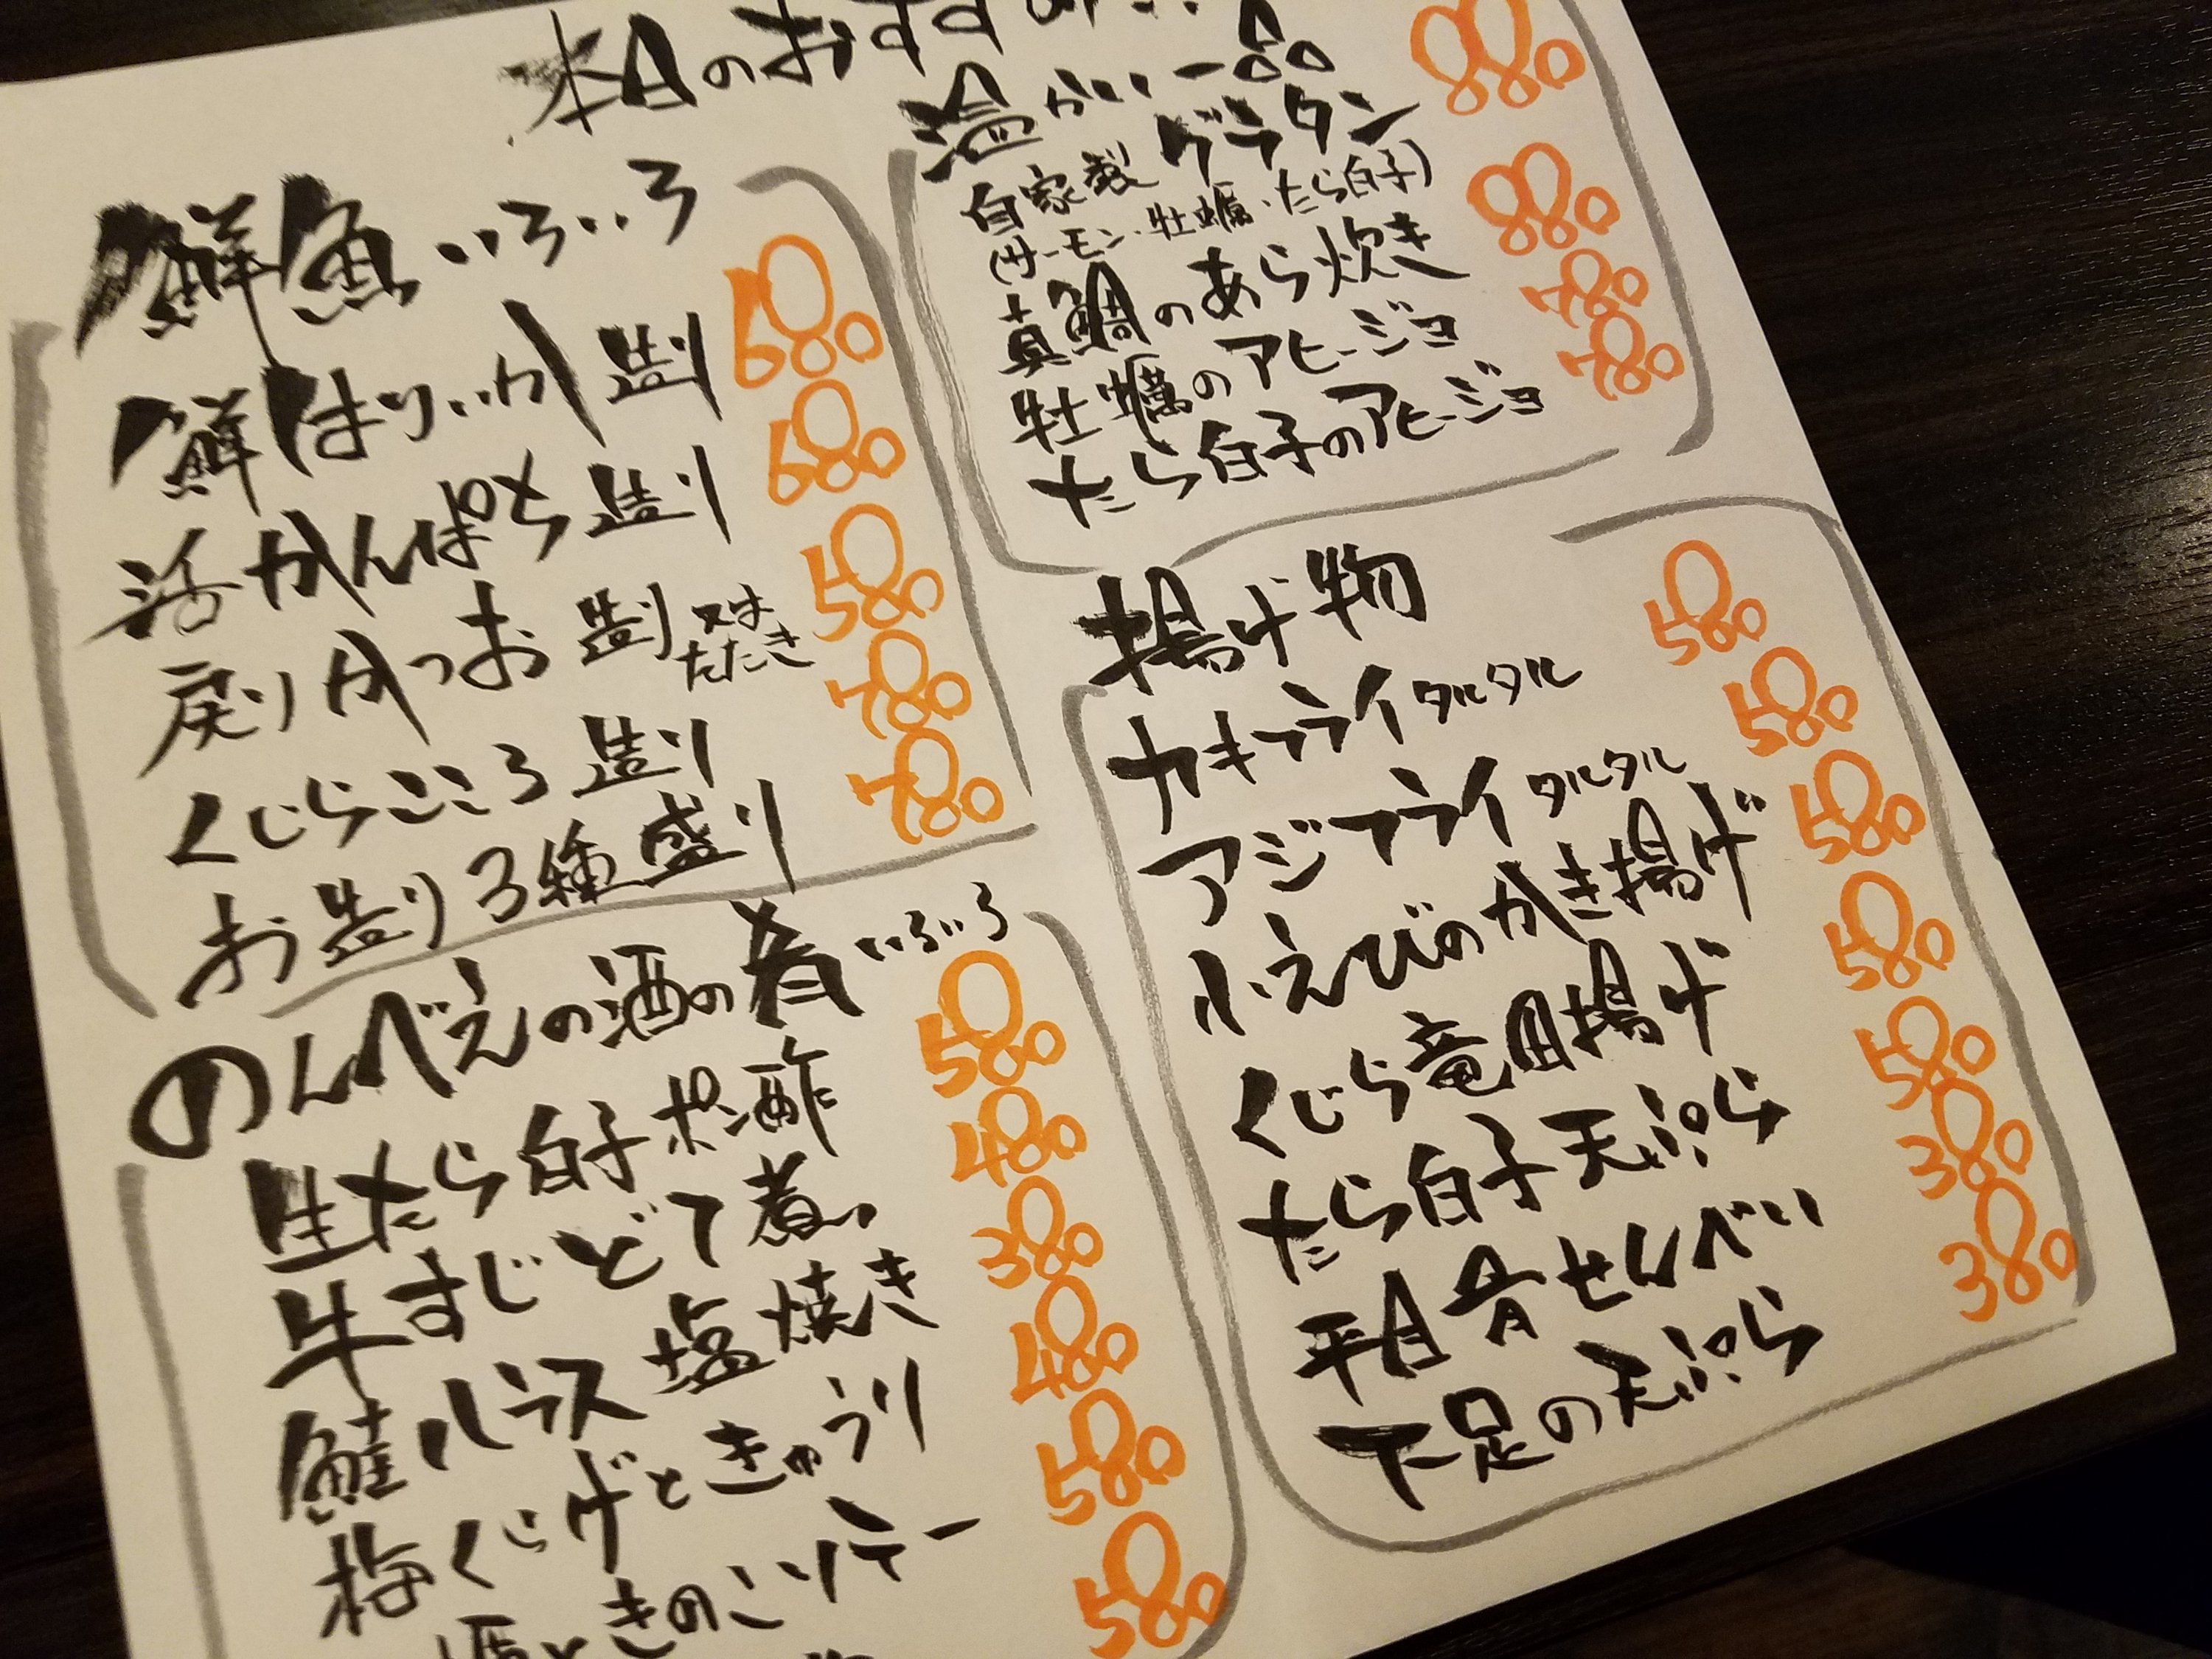 本日のおすすめ
鮮魚いろいろ
鮮はりいか造り 680
活かんぱち造り 680
戻りかつお造り又はたたき 580
くじらこころ造り 780
お造り3種盛り 780
のんべえの酒の肴いろいろ
生たら白子ポン酢 580
牛すじどて煮 480
鮭ハラス塩焼き 380
梅くらげときゅうり 480
ときのこソテー 580
580
温かい一品
自家製グラタン 880
(サーモン・牡蠣・たら白子)
真鯛のあら炊き 880
牡蠣のアヒージョ 780
たら白子のアヒージョ 780
揚げ物
カキフライタルタル 580
アジフライタルタル 580
小えびのかき揚げ 580
くじら竜田揚げ 580
たら白子天ぷら 580
平目骨せんべい 380
下足の天ぷら 380